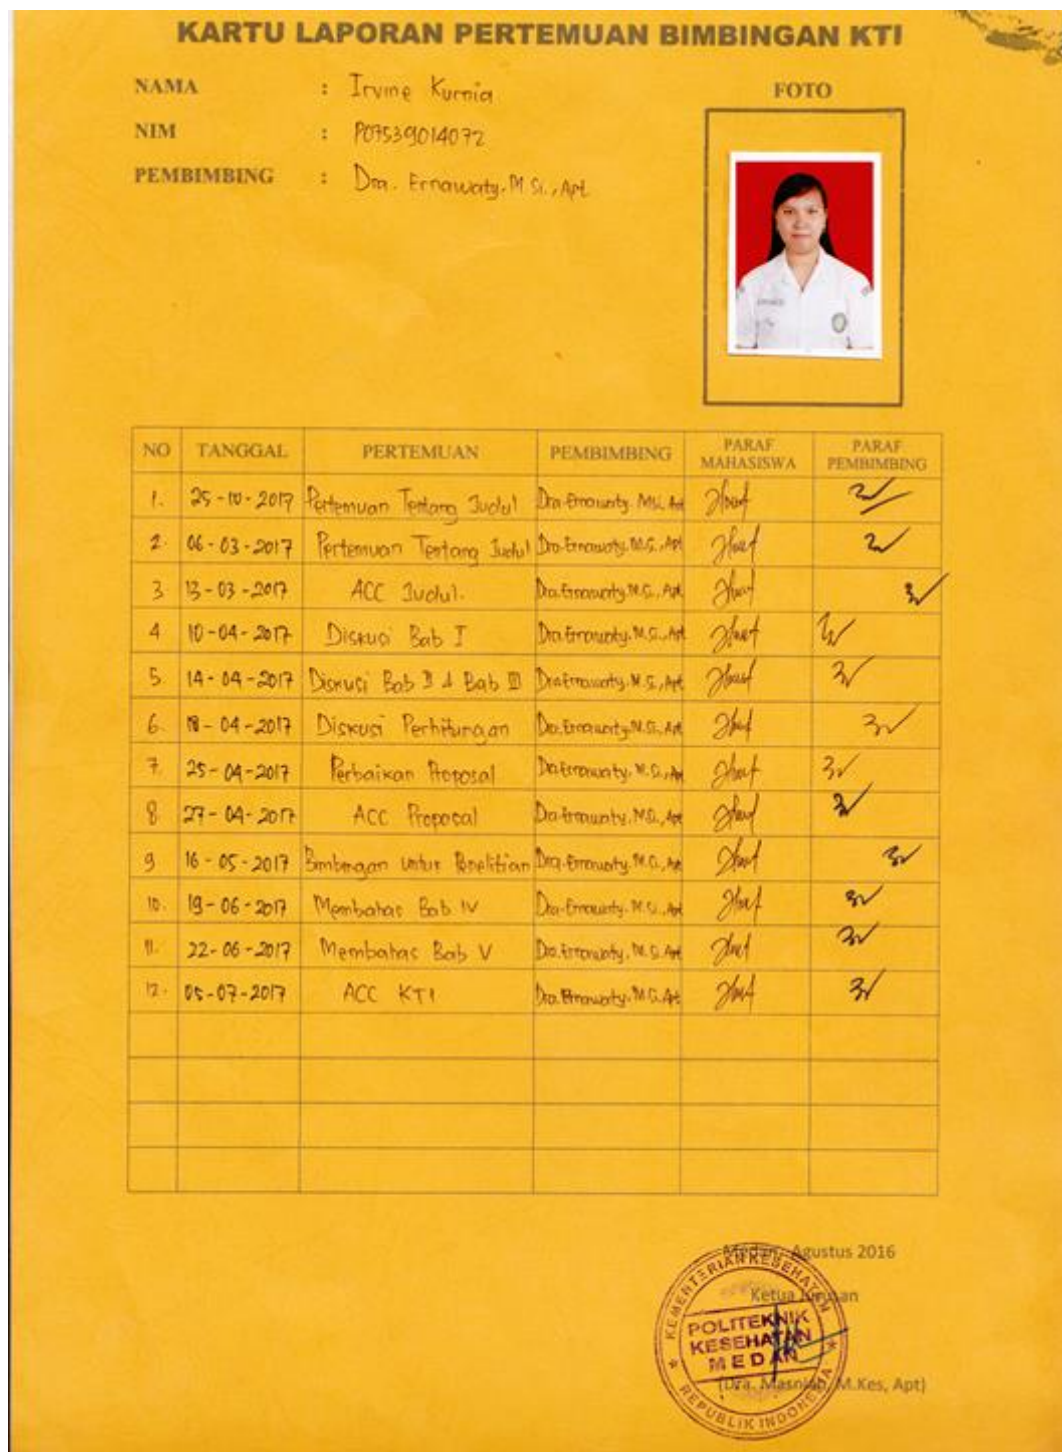 KARTU LAPORAN PERTEMUAN BIMBINGAN KTI
NAMA : Irvine Kurnia
FOTO
NIM : P07539014072
PEMBIMBING : Dra. Ernawaty, M.Si., Apt
NO TANGGAL PERTEMUAN PEMBIMBING PARAF MAHASISWA PARAF PEMBIMBING
1. 25-10-2017 Pertemuan Tentang Judul Dra. Ernawaty, M.Si, Apt
2. 06-03-2017 Pertemuan Tentang Judul Dra. Ernawaty, M.Si., Apt
3. 13-03-2017 ACC Judul. Dra. Ernawaty, M.Si., Apt
4 10-04-2017 Diskusi Bab I Dra. Ernawaty, M.Si., Apt
5. 14-04-2017 Diskusi Bab II & Bab III Dra. Ernawaty, M.Si., Apt
6. 18-04-2017 Diskusi Perhitungan Dra. Ernawaty, M.Si, Apt
7. 25-04-2017 Perbaikan Proposal Dra. Ernawaty, M.Si., Apt
8. 27-04-2017 ACC Proposal Dra. Ernawaty, M.Si., Apt
9 16-05-2017 Bimbingan untuk Penelitian Dra. Ernawaty, M.Si., Apt
10. 19-06-2017 Membahas Bab IV Dra. Ernawaty, M.Si., Apt
11. 22-06-2017 Membahas Bab V Dra. Ernawaty, M.Si, Apt
12. 05-07-2017 ACC KTI Dra. Ernawaty, M.Si, Apt
Medan, Agustus 2016
Ketua Jurusan
KEMENTERIAN KESEHATAN
POLITEKNIK
KESEHATAN
MEDAN
REPUBLIK INDONESIA
(Dra. Masniah, M.Kes, Apt)